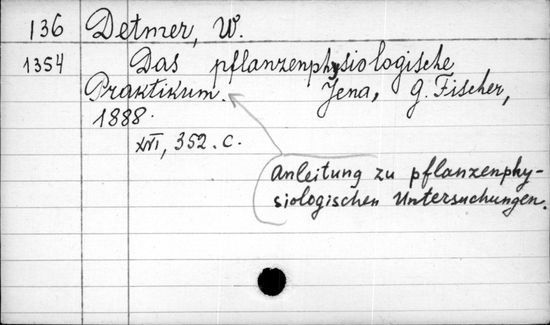 136 Detmer, W.
1354 Das pflanzenphysiologische
Praktikum. Jena, G. Fischer,
1888.
XVI, 352. c.
Anleitung zu pflanzenphy-
siologischen Untersuchungen.